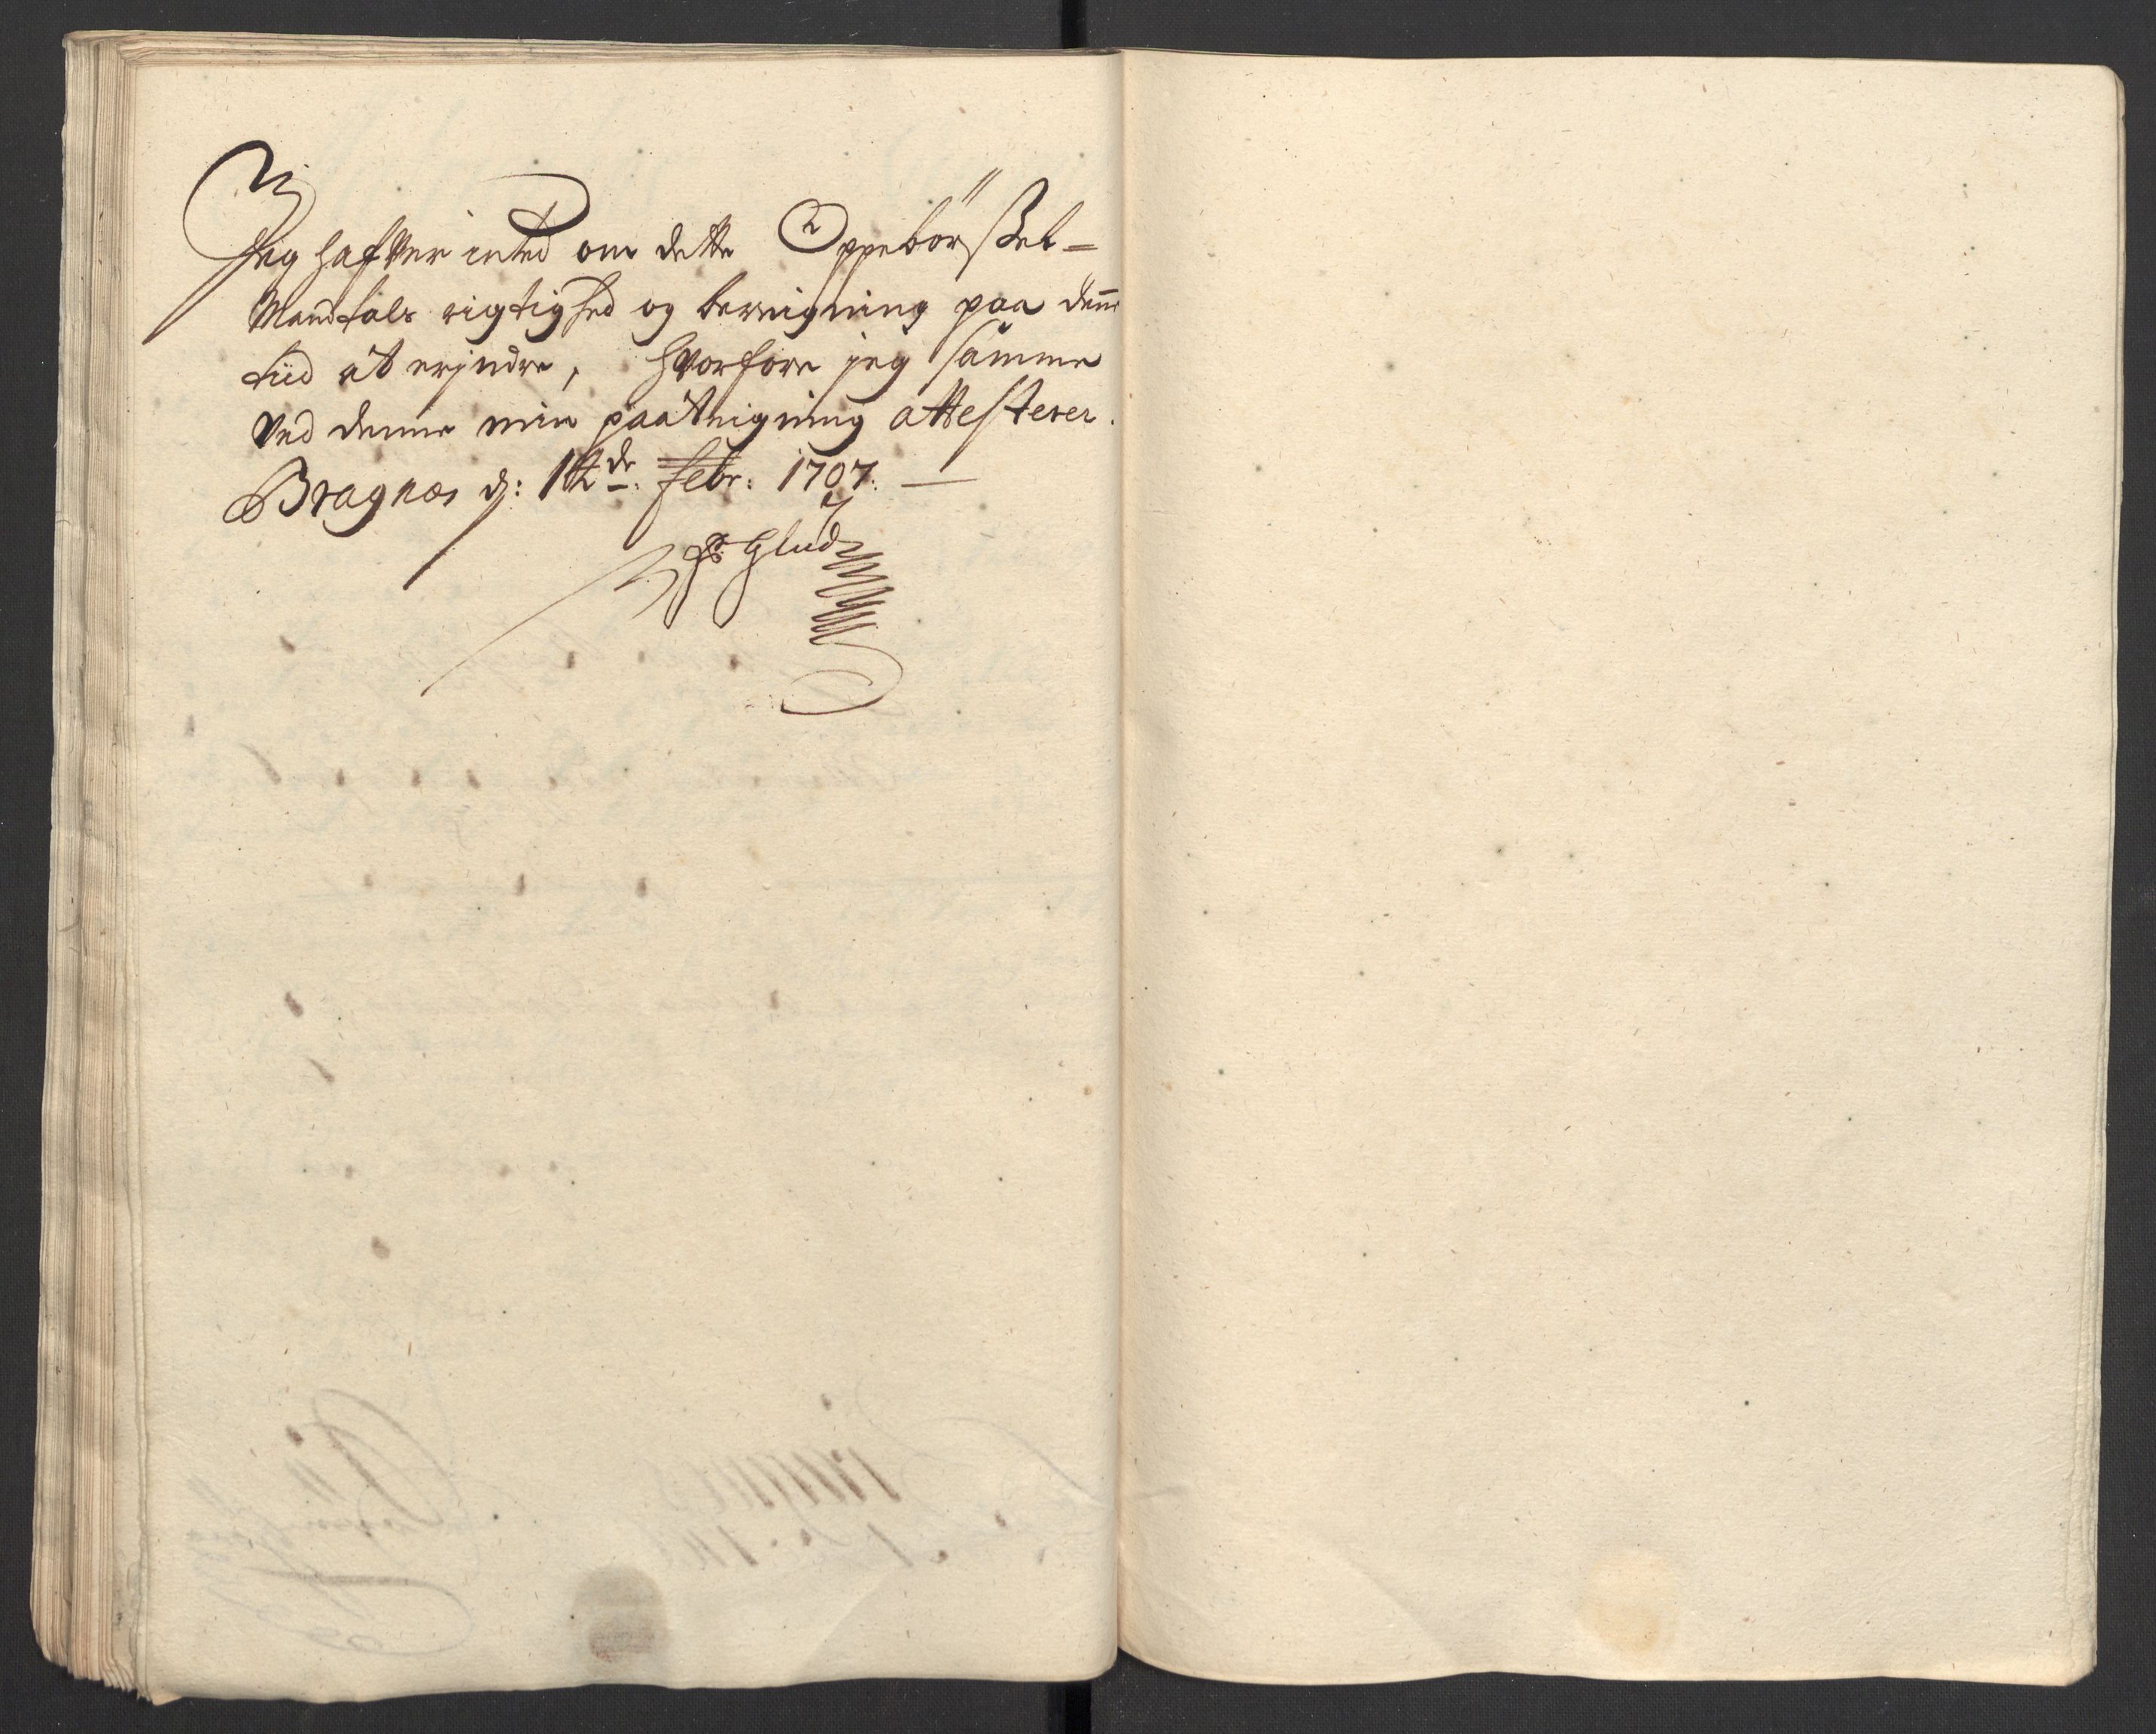 Jeg hafver inted om dette Oppebörßel-
Mandtals rigtighed og beregning paa denne
tiid at erjndre, hvorfore jeg samme
Ved denne min paateigning attesterer.
Bragnæs d: 12de. Febr: 1707.
Glud